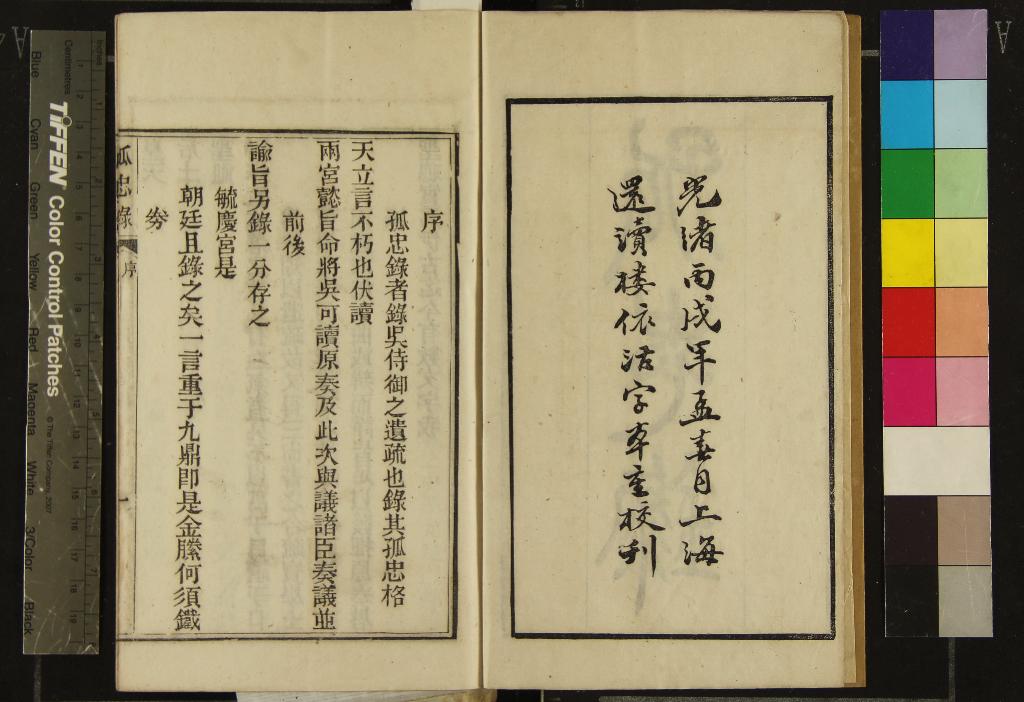 光緒丙戌年孟春月上海
還讀樓依活字本重校刊
序
孤忠錄者錄吳侍御之遺疏也錄其孤忠格
天立言不朽也伏讀
兩宮懿旨命將吳可讀原奏及此次與議諸臣奏議並
前後
諭旨另錄一分存之
毓慶宮是
朝廷且錄之矣一言重于九鼎卽是金縢何須鐵
劵
孤忠錄
序
一
Centimetres
Inches
TIFFEN Color Control Patches
© The Tiffen Company, 2007
Blue
Cyan
Green
Yellow
Red
Magenta
White
3/Color
Black
A
A